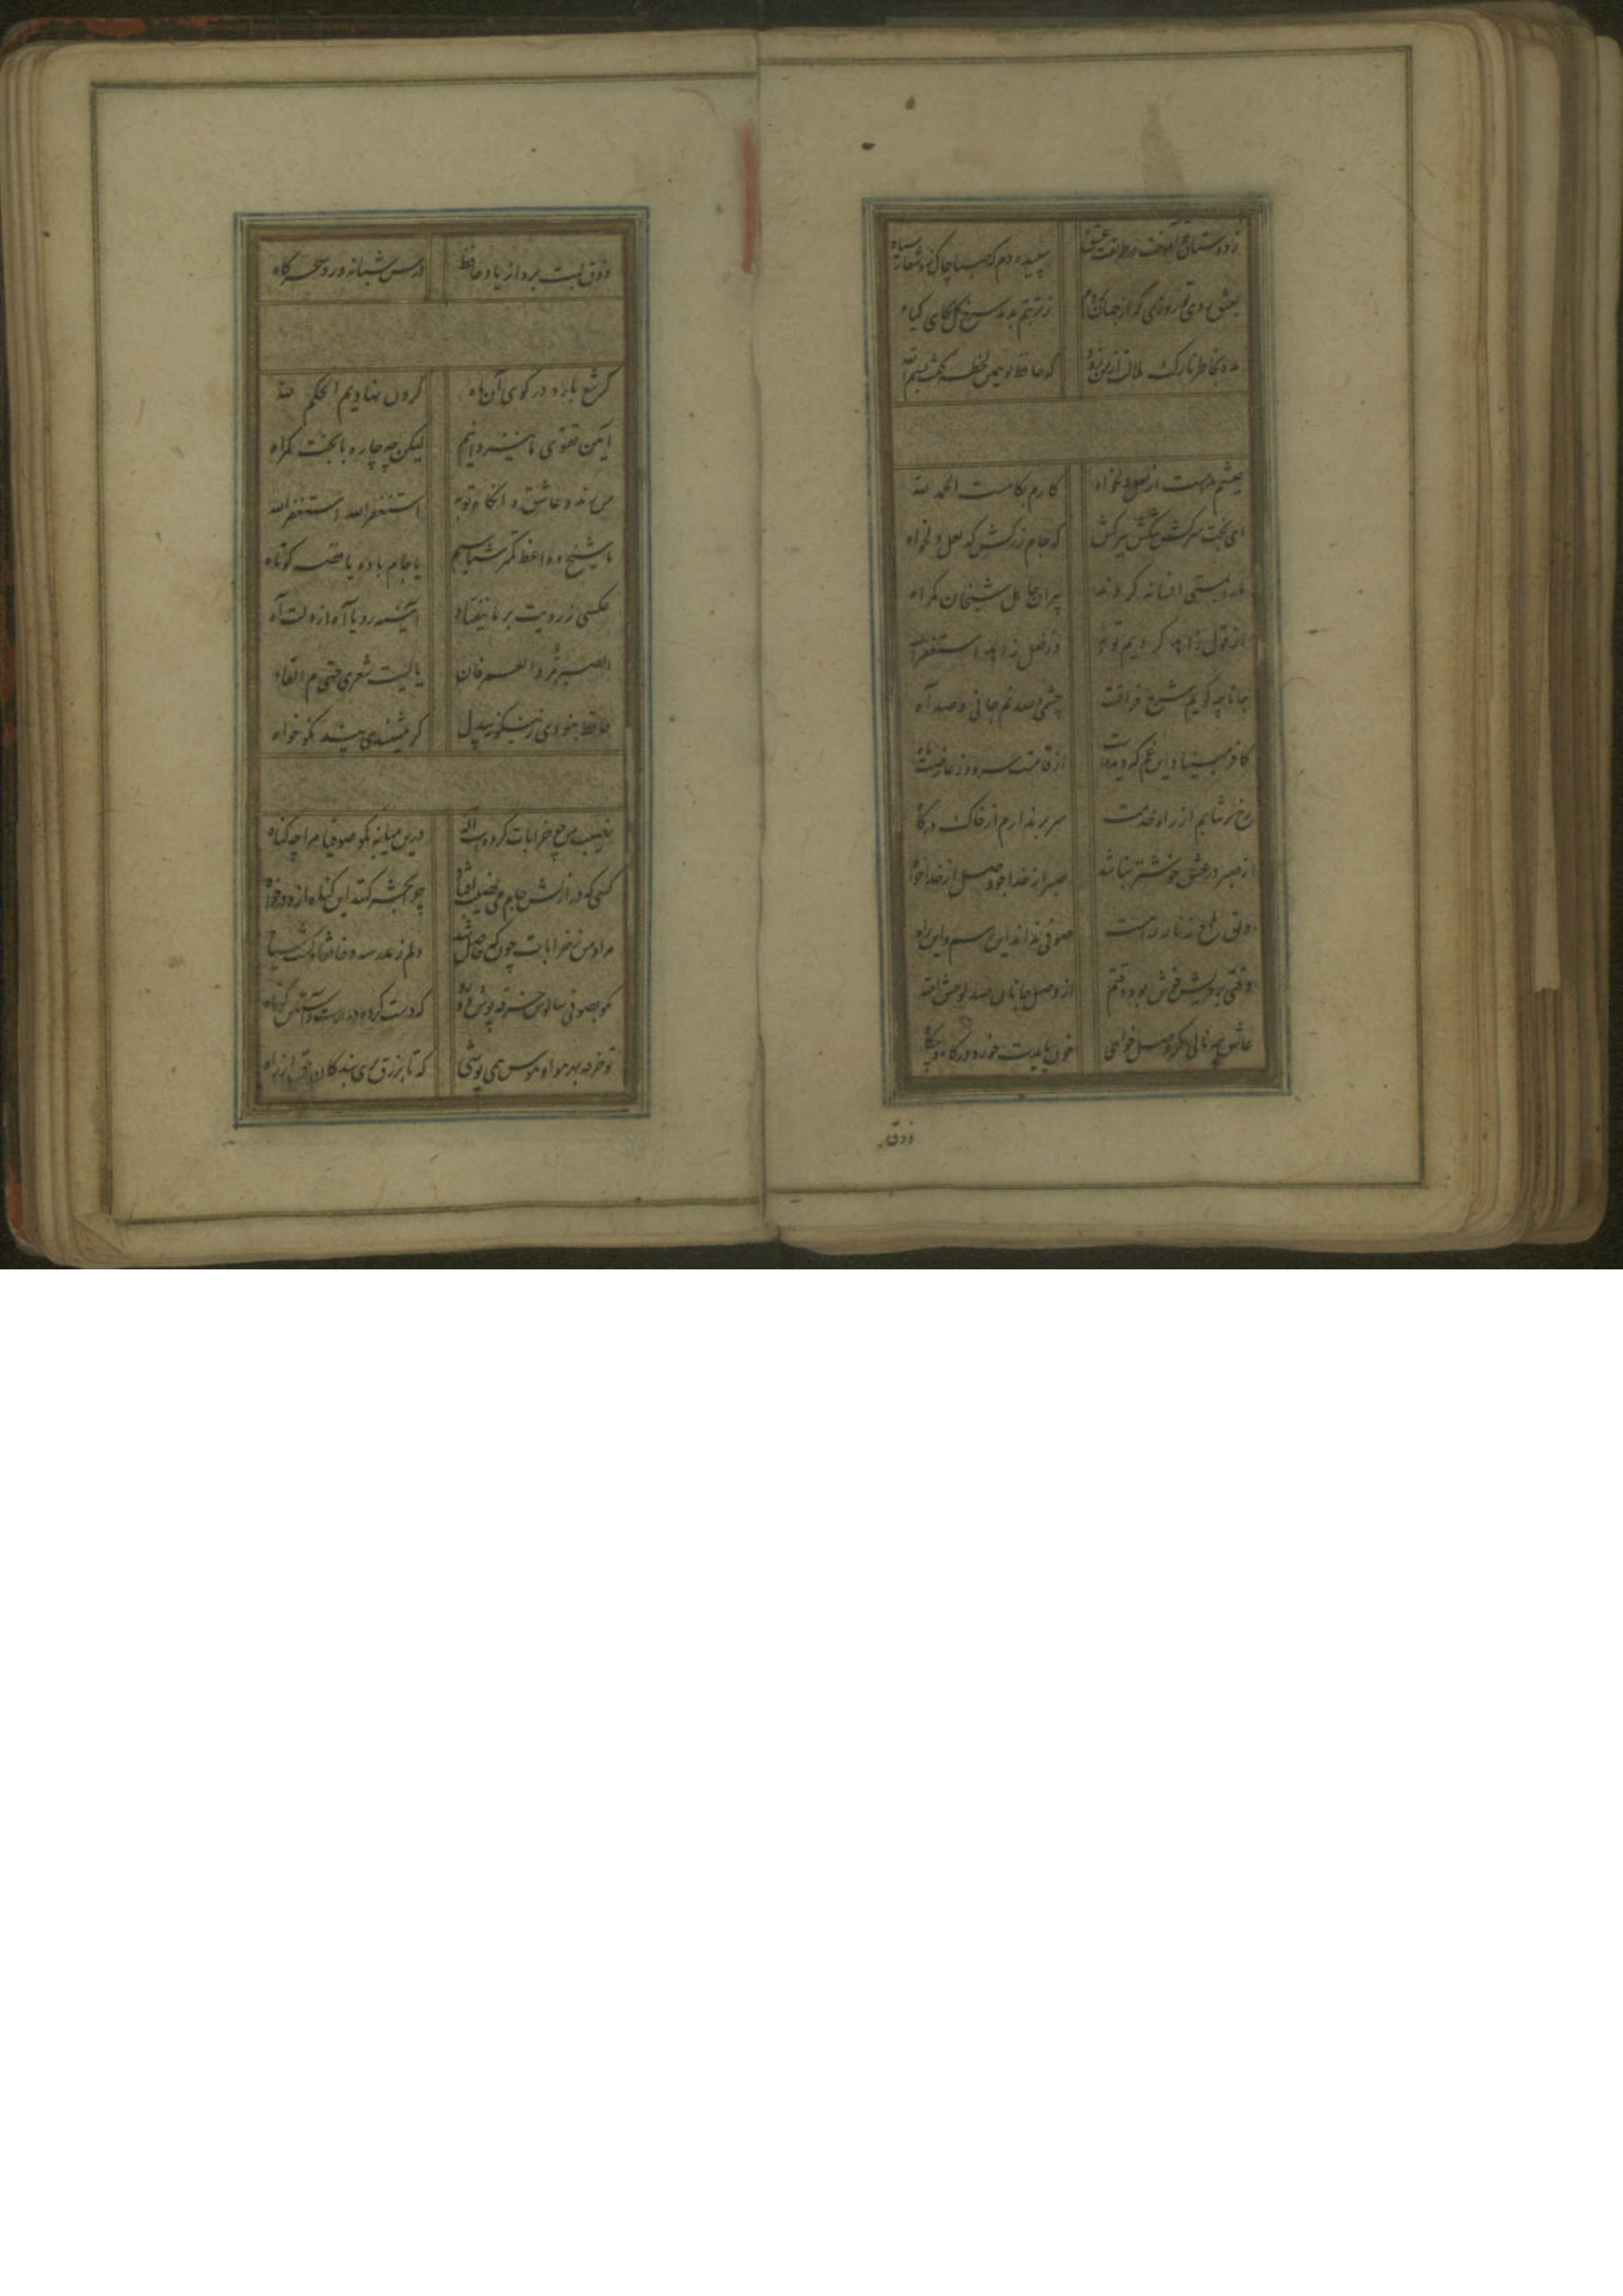 ز دوستان تو آموخت در طریقت عشق سپیده دم که صبا چاک زد شعار سیاه
بعشق روی تو روزی که از جهان بروم ز تربتم بدمد سرخ گل بجای گیاه
مده بخاطر نازک ملالت از من زود که حافظ تو همین لحظه گفت بسم الله
عیشم مدامست از لعل دلخواه کارم بکامست الحمد لله
ای بخت سرکش تنگش ببر کش که جام زر کش که لعل دلخواه
ما را بمستی افسانه کردند پیران جاهل شیخان گمراه
از قول زاهد کردیم توبه وز فعل زاهد استغفر الله
جانا چه گویم شرح فراقت چشمی و صد نم جانی و صد آه
کافر مبیناد این غم که دیدست از قامتت سرو و ز عارضت ماه
رخ بر نتابم از راه خدمت سر بر ندارم از خاک درگاه
از صبر در عشق خوشتر نباشد صبر از خدا خواه وصل از خدا خواه
دلق ملمع زنار راهست صوفی نداند این رسم و این راه
وقتی برویش خوش بود وقتم از وصل جانان صد لوحش الله
عاشق چه نالی گر وصل خواهی خون بایدت خورد در گاه و بیگاه
ذوق
ذوق لبت برد از یاد حافظ درس شبانه ورد سحرگاه
گر تیغ بارد در کوی آن ماه گردن نهادیم الحکم لله
آیین تقوی ما نیز دانیم لیکن چه چاره با بخت گمراه
من رند و عاشق و آنگاه توبه استغفر الله استغفر الله
ما شیخ و واعظ کمتر شناسیم یا جام باده یا قصه کوتاه
عکسی ز رویت بر ما نیفتاد آیینه رویا آه از دلت آه
الصبر مر و العمر فان یا لیت شعری حتی م القاه
حافظ
نصیب من چو خرابات کرده است اله درین میانه بگو صوفیا مرا چه گناه
کسی که در ازلش جام می نصیب افتاد چرا بحشر کنند این گناه ازو درخواه
مراد من ز خرابات چون که حاصل شد دلم ز مدرسه و خانقاه گشت سیاه
بگو بصوفی سالوس خرقه پوش دو رو که دست کرده دراز است و آستین کوتاه
تو خرقه بهر هوا و هوس همی پوشی که تا بزرق بری بندگان حق از راه